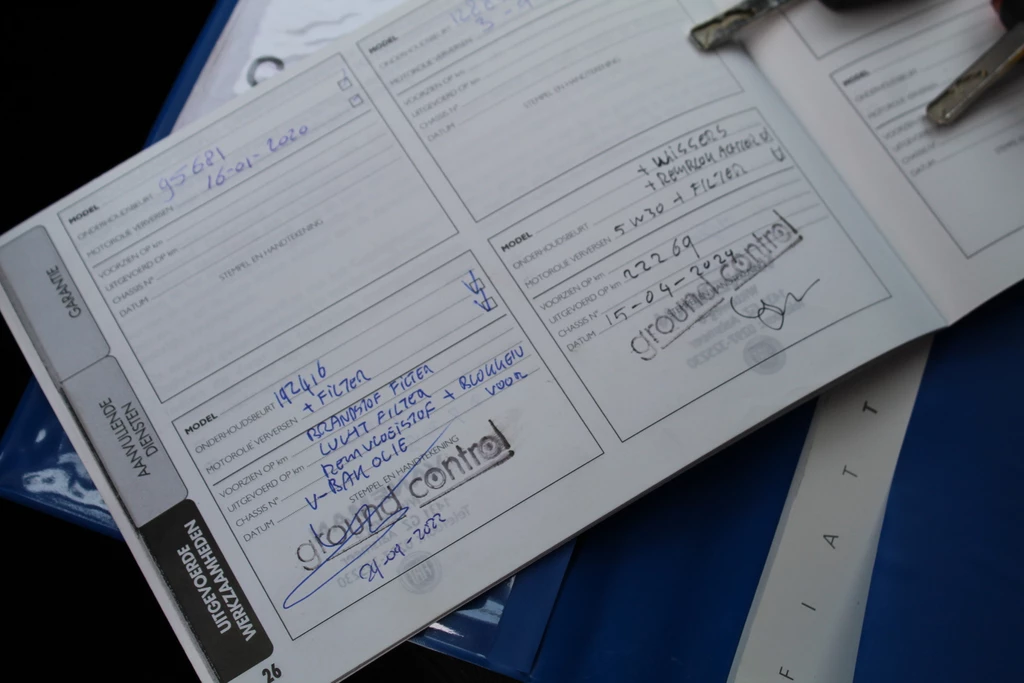 GARANTIE
AANVULLENDE
DIENSTEN
UITGEVOERDE
WERKZAAMHEDEN
MODEL
ONDERHOUDSBEURT 95681
MOTOROLIE VERVERSEN 16-01-2020
VOORZIEN OP km
UITGEVOERD OP km
CHASSIS N°
DATUM
STEMPEL EN HANDTEKENING
MODEL
ONDERHOUDSBEURT 192416
MOTOROLIE VERVERSEN + FILTER
VOORZIEN OP km BRANDSTOF FILTER
UITGEVOERD OP km LUCHT FILTER
CHASSIS N° REMVLOEISTOF + BLOKKEN
VOOR
DATUM V-BAK OLIE
STEMPEL EN HANDTEKENING
ground control
21-09-2022
26
MODEL
ONDERHOUDSBEURT
MOTOROLIE VERVERSEN
VOORZIEN OP km
UITGEVOERD OP km
CHASSIS N°
DATUM
STEMPEL EN HANDTEKENING
+ WISSERS
MODEL
ONDERHOUDSBEURT
MOTOROLIE VERVERSEN 5W30 + FILTER
VOORZIEN OP km
UITGEVOERD OP km 22269
CHASSIS N°
DATUM 15-04-2024
ground control
MODEL
FIAT T